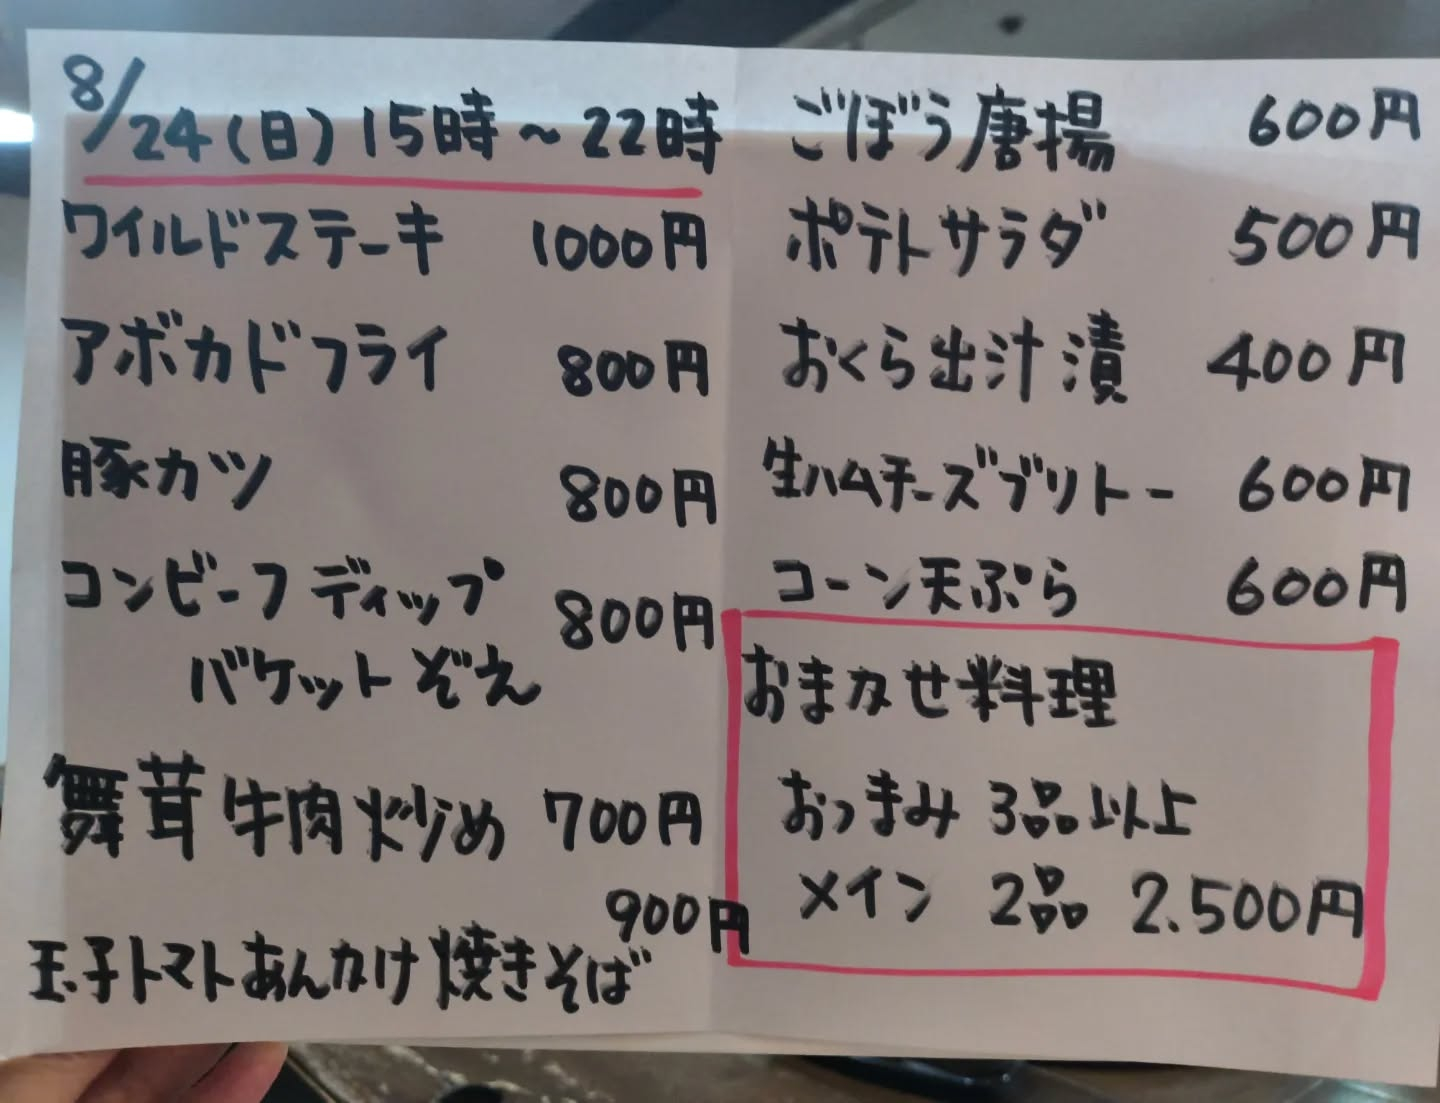 8/24(日)15時〜22時
ワイルドステーキ 1000円
アボカドフライ 800円
豚カツ 800円
コンビーフディップ 800円
バケットぞえ
舞茸牛肉炒め 700円
900円
玉子トマトあんかけ焼きそば
ごぼう唐揚 600円
ポテトサラダ 500円
おくら出汁漬 400円
生ハムチーズブリトー 600円
コーン天ぷら 600円
おまかせ料理
おつまみ 3品以上
メイン 2品 2.500円